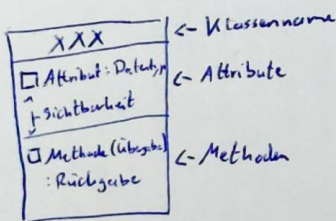 XXX
<- Klassenname
Attribut: Datentyp
<- Attribute
Sichtbarkeit
Methode (Übergabe)
: Rückgabe
<- Methoden